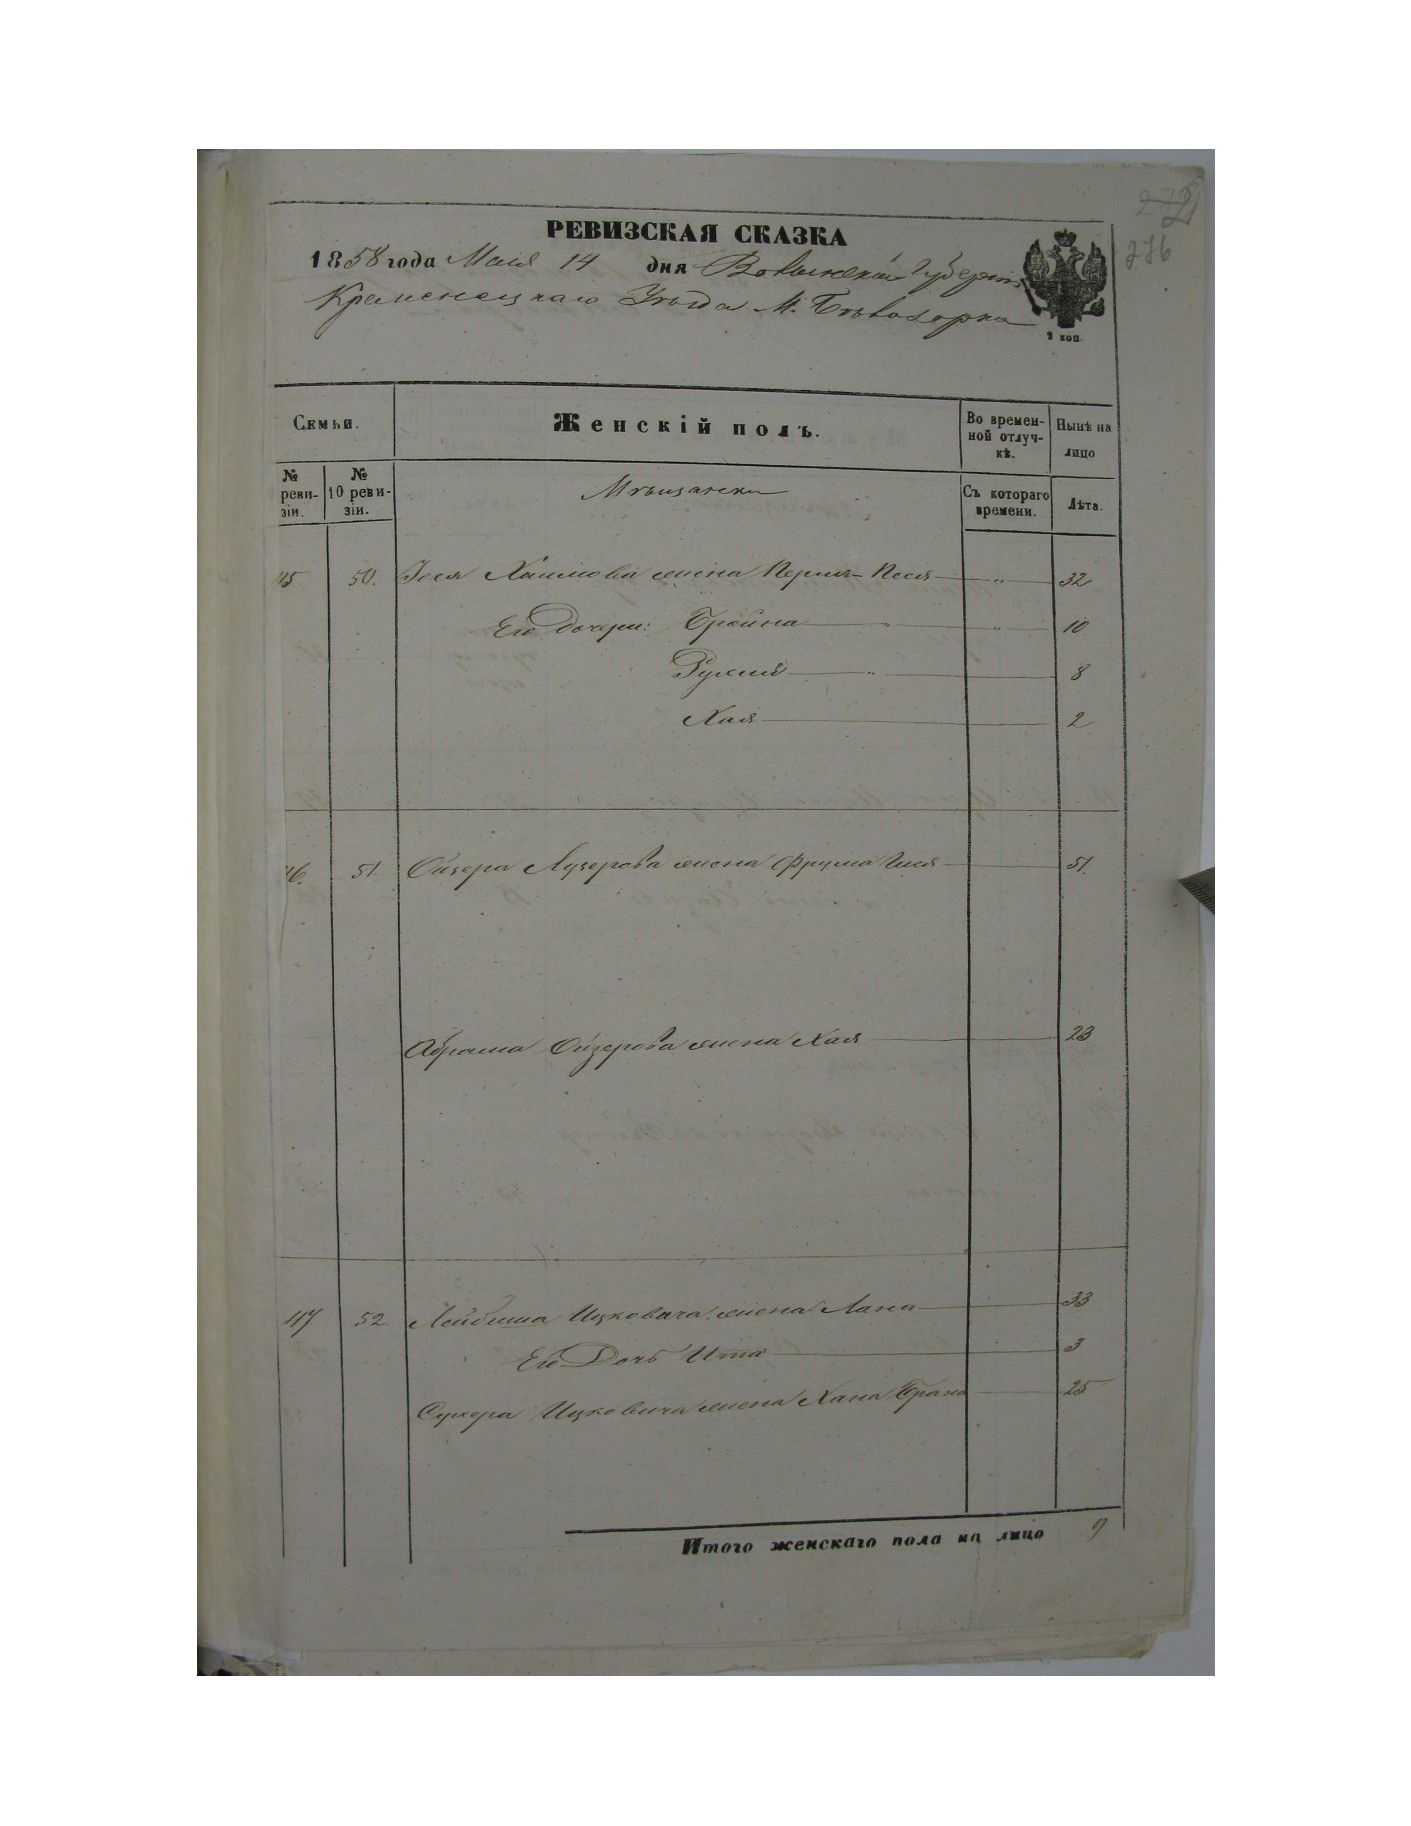 276
РЕВИЗСКАЯ СКАЗКА
1858 года Маія 14 дня Волынской Губерніи
Кременецкаго Уѣзда М. Бѣлозорка
2 коп
Семьи. Женскій полъ. Во времен-ной отлуч-кѣ. Нынѣ на лицо
№ реви-зіи. № 10 реви-зіи. Мѣщански Съ котораго времени. Лѣта.
45 50. Іося Хаимова жена Перля-Песя " 32
Его дочери: Бройна " " 10
Рухля " 8
Хая 2
46. 51. Ойзера Лузерова жена Фрума 51.
Абрама Ойзерова жена Хая 23
47 52. Лейбиша Ицковича жена Хана 33
Его Дочь Ита 3
Сухера Ицковича жена Хана Брана 25
Итого женскаго пола на лицо 9